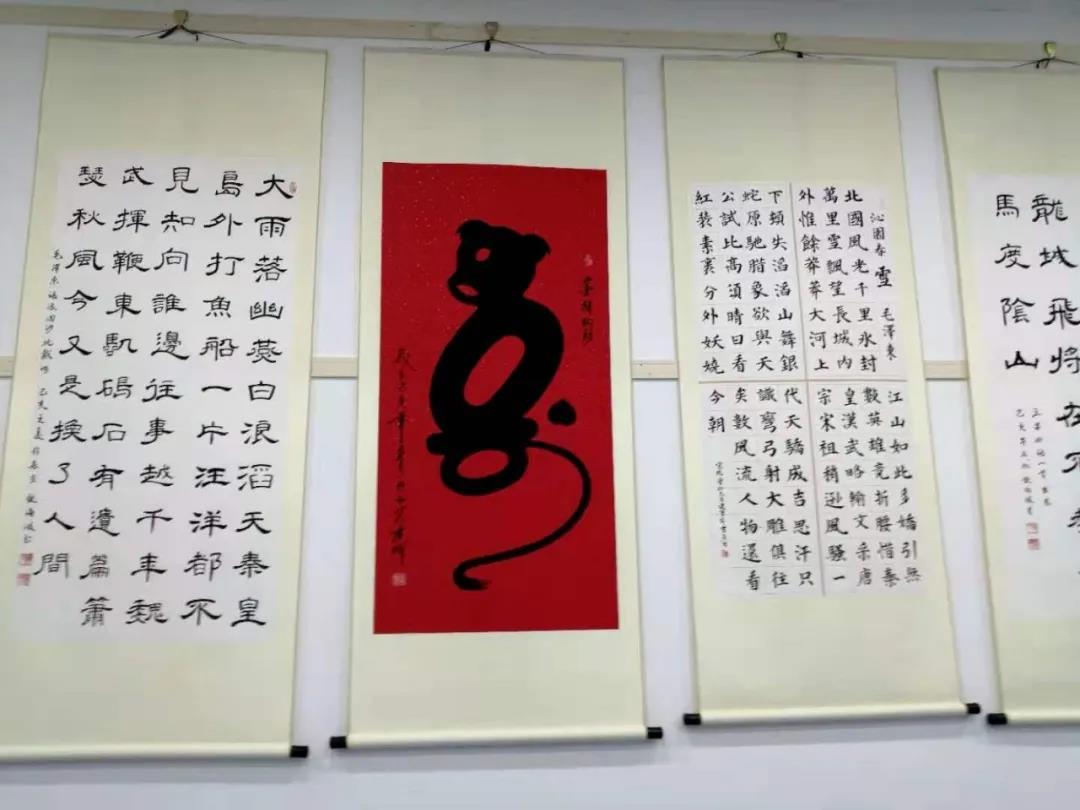 大雨落幽燕白浪滔天秦皇
島外打魚船一片汪洋都不
見知向誰邊往事越千年魏
武揮鞭東臨碣石有遺篇蕭
瑟秋風今又是換了人間
毛澤東詞浪淘沙北戴河 己亥之夏
沁園春 雪 毛澤東
北國風光千里冰封
萬里雪飄望長城內
外惟餘莽莽大河上
下頓失滔滔山舞銀
蛇原馳腊象欲與天
公試比高須晴日看
紅裝素裹分外妖嬈
江山如此多嬌引無
數英雄竞折腰惜秦
皇漢武略輸文采唐
宗宋祖稍遜風騷一
代天驕成吉思汗只
識彎弓射大雕俱往
矣數風流人物還看
今朝
龍城飛將在不
馬度陰山